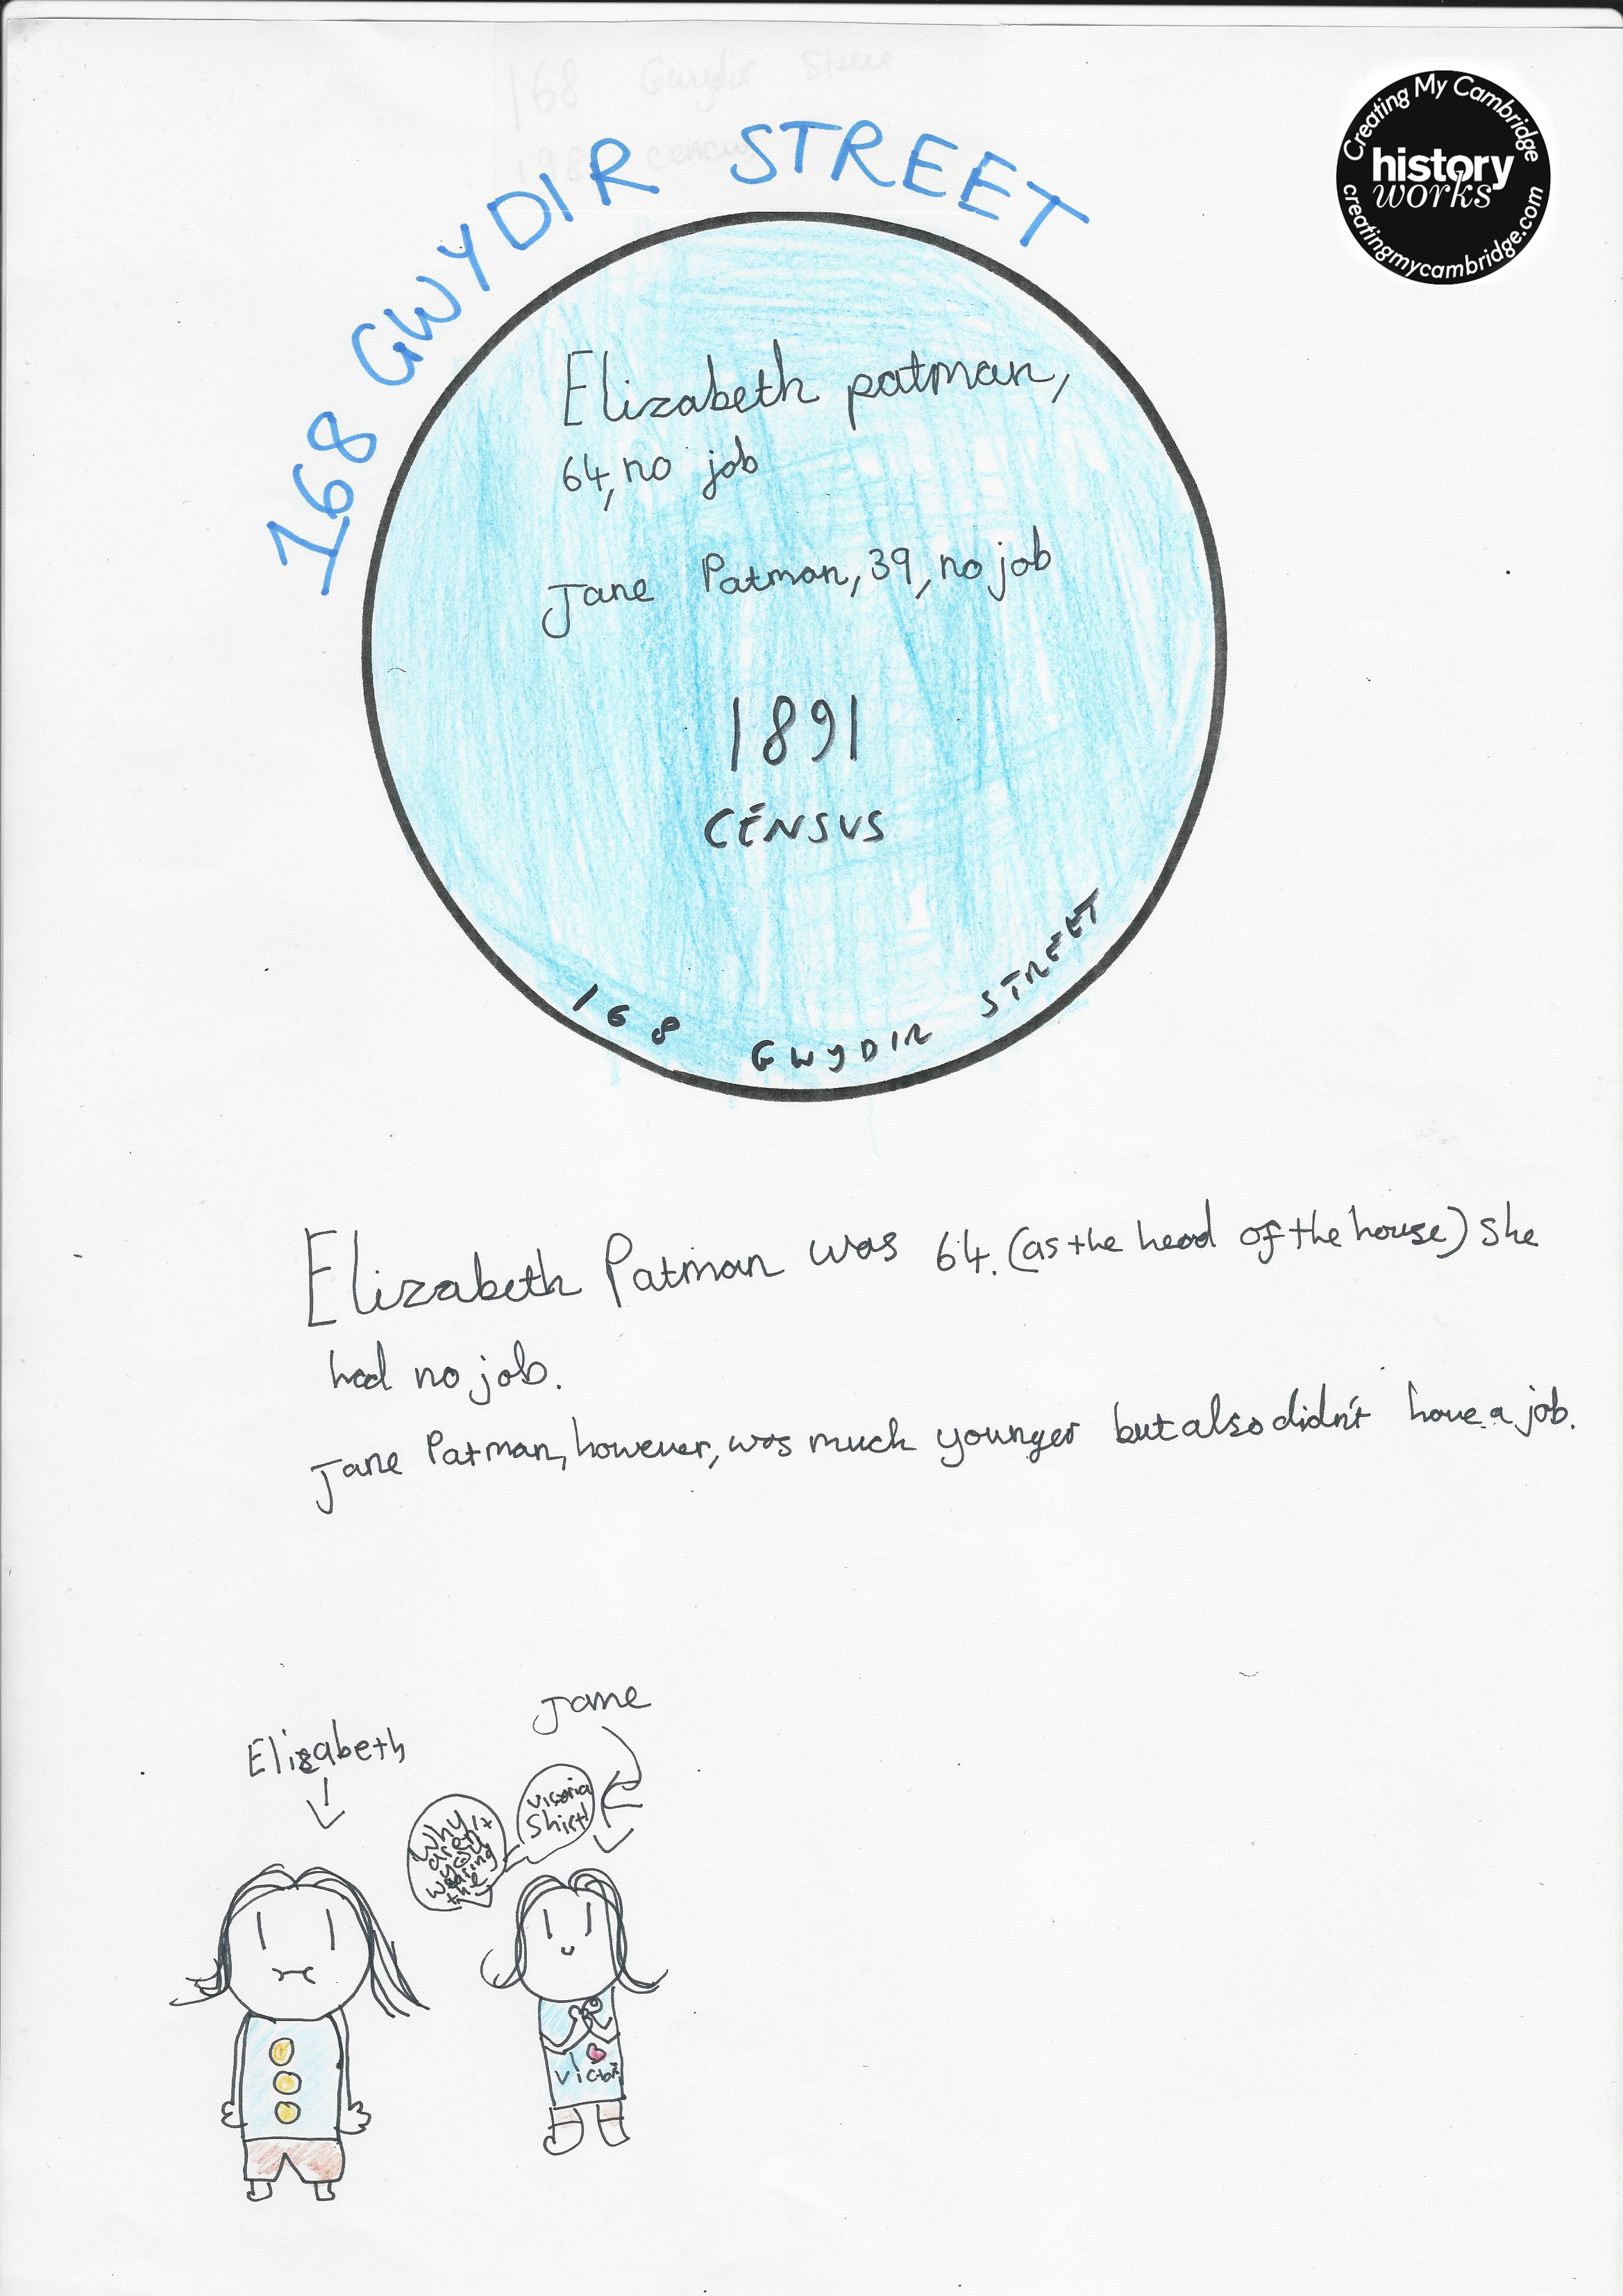 168 Gwydir Street
168 GWYDIR STREET
Creating My Cambridge
history
works
creatingmycambridge.com
Elizabeth patman,
64, no job
Jane Patman, 39, no job
1891
CENSUS
168 GWYDIR STREET
Elizabeth Patman was 64. (as the head of the house) she
had no job.
Jane Patman, however, was much younger but also didn't have a job.
Jane
Elizabeth
Why
aren't
you
wearing
the
victoria
Shirt!
I